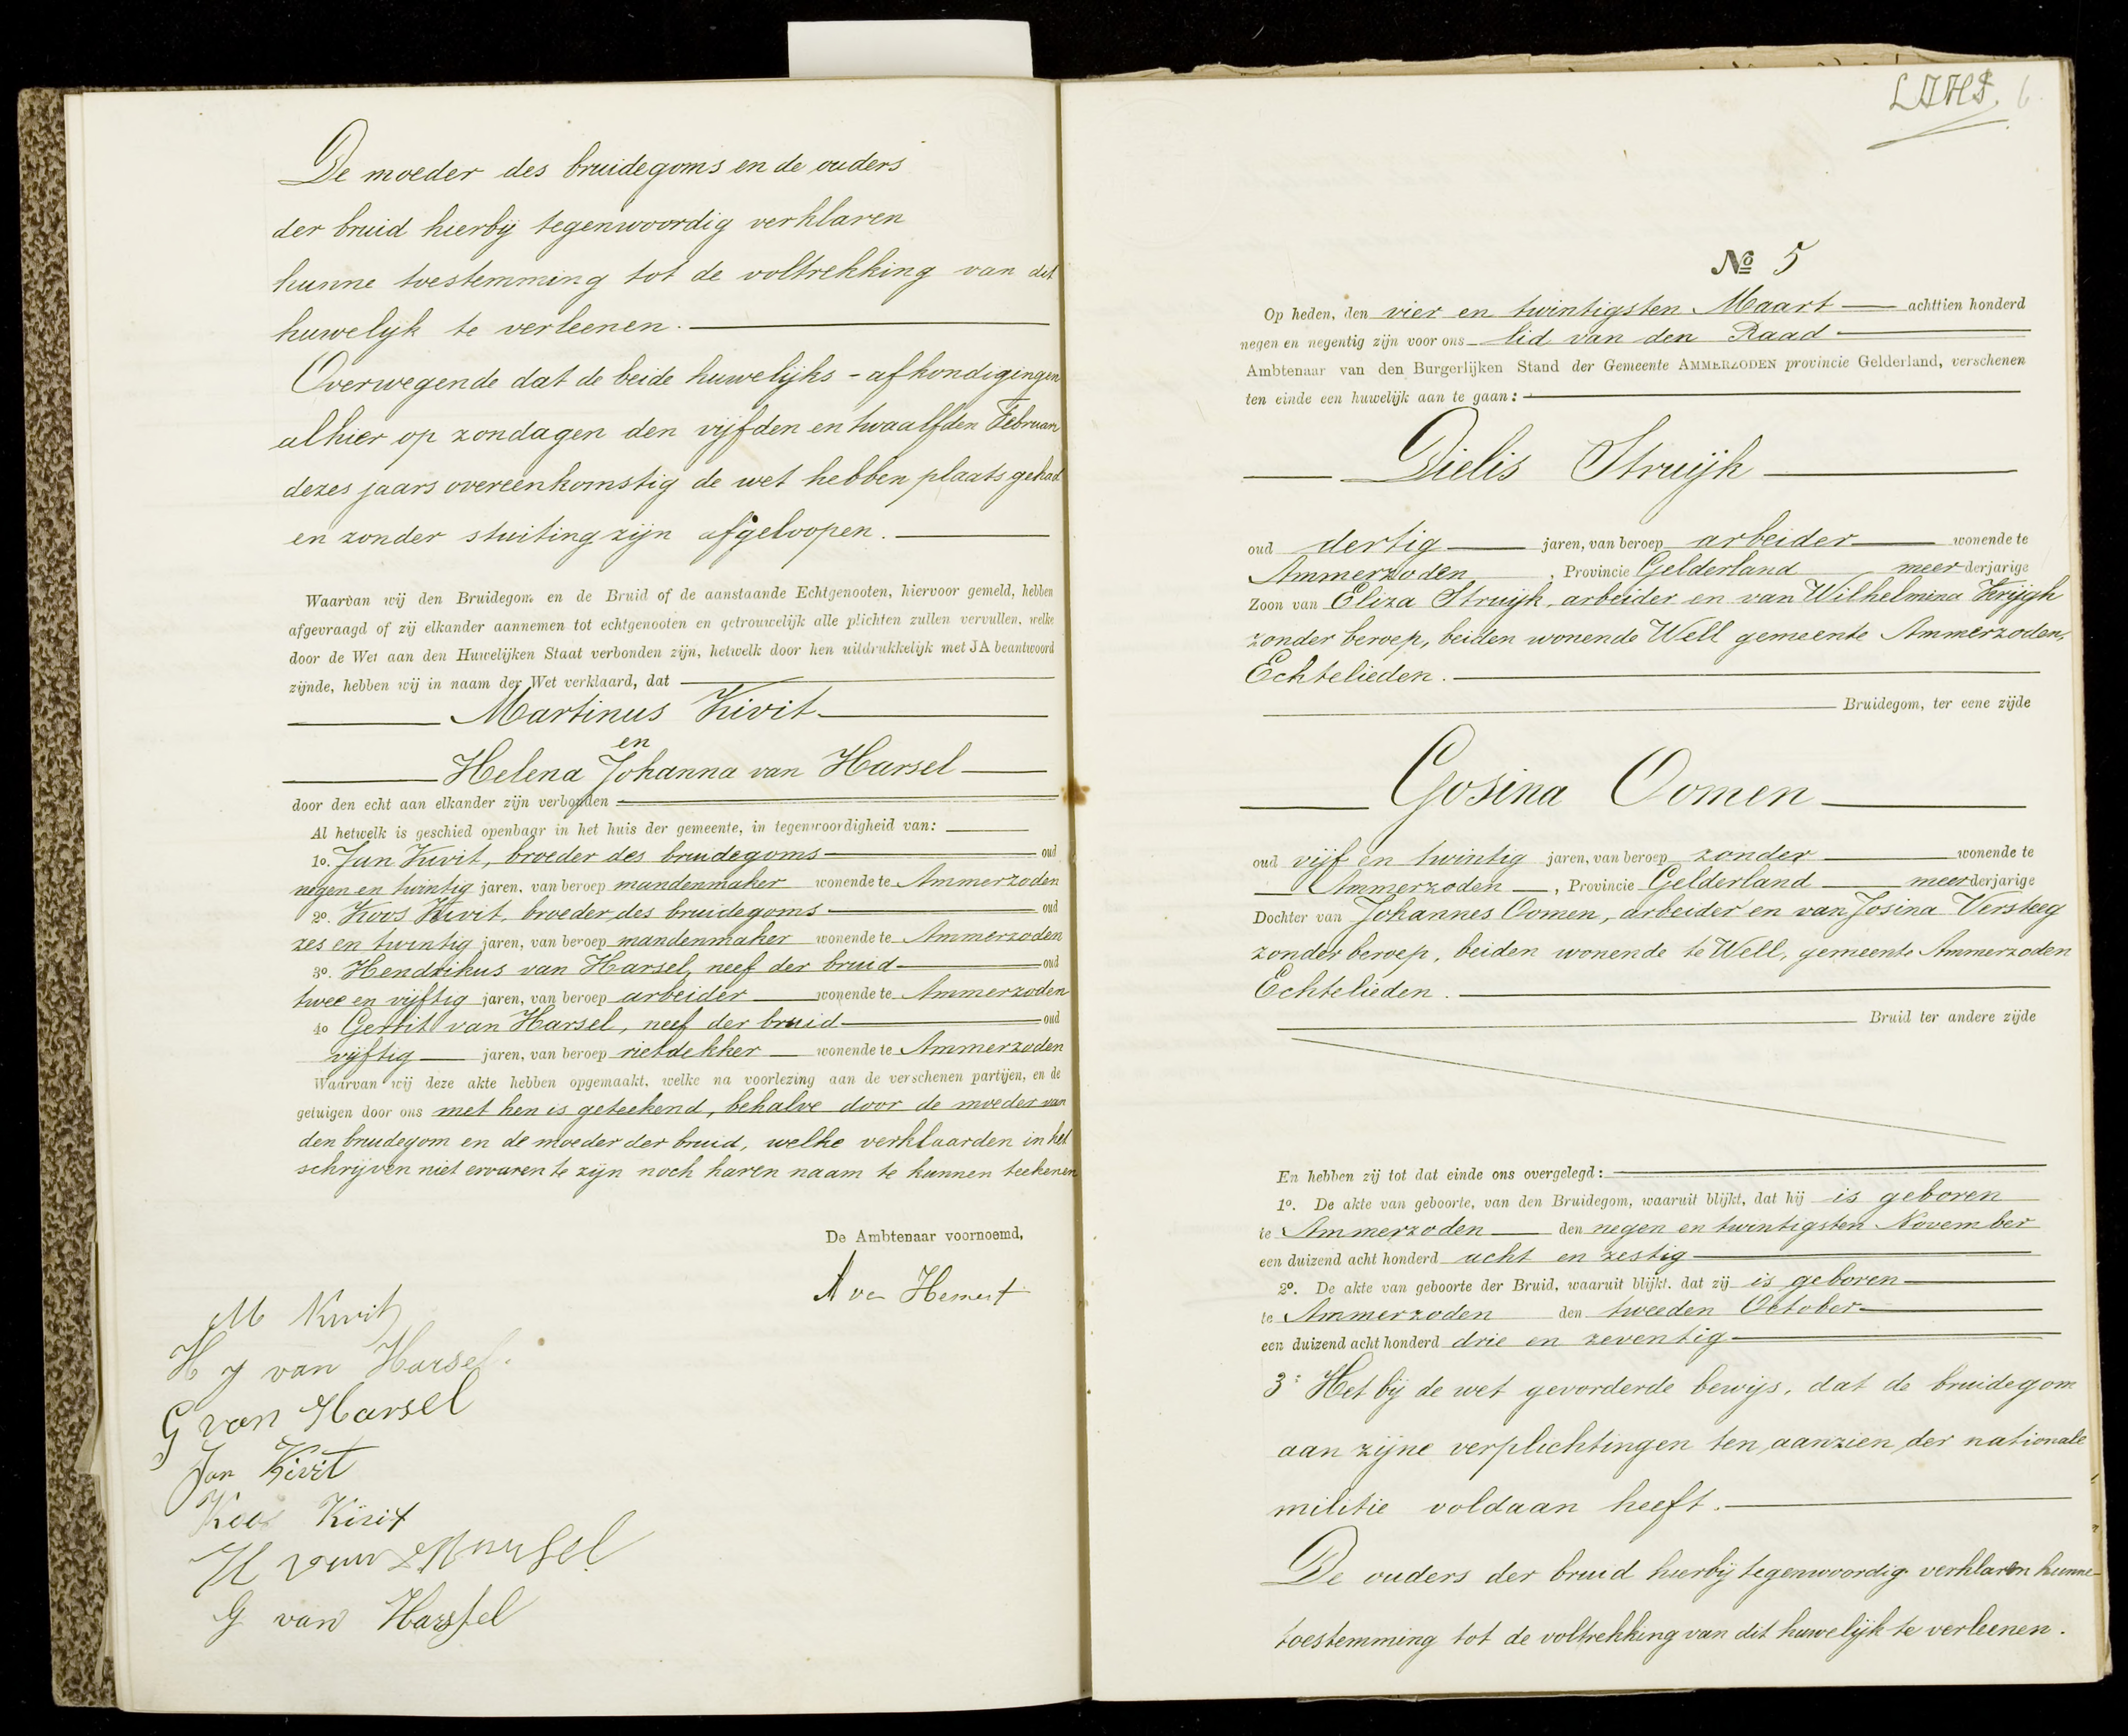 De moeder des bruidegoms en de ouders
der bruid hierbij tegenwoordig verklaren
hunne toestemming tot de voltrekking van dit
huwelijk te verleenen.
Overwegende dat de beide huwelijks-afkondigingen
alhier op zondagen den vijfden en twaalfden Februari
dezes jaars overeenkomstig de wet hebben plaats gehad
en zonder stuiting zijn afgeloopen.
Waarvan wij den Bruidegom en de Bruid of de aanstaande Echtgenooten, hiervoor gemeld, hebben
afgevraagd of zij elkander aannemen tot echtgenooten en getrouwelijk alle plichten zullen vervullen, welke
door de Wet aan den Huwelijken Staat verbonden zijn, hetwelk door hen uitdrukkelijk met JA beantwoord
zijnde, hebben wij in naam der Wet verklaard, dat
Martinus Kivit
en
Helena Johanna van Harsel
door den echt aan elkander zijn verbonden
Al hetwelk is geschied openbaar in het huis der gemeente, in tegenwoordigheid van:
1o. Jan Kivit, broeder des bruidegoms oud
negen en twintig jaren, van beroep mandenmaker wonende te Ammerzoden
2o. Koos Kivit, broeder des bruidegoms oud
zes en twintig jaren, van beroep mandenmaker wonende te Ammerzoden
3o. Hendrikus van Harsel, neef der bruid oud
twee en vijftig jaren, van beroep arbeider wonende te Ammerzoden
4o Gerrit van Harsel, neef der bruid oud
vijftig jaren, van beroep rietdekker wonende te Ammerzoden
Waarvan wij deze akte hebben opgemaakt, welke na voorlezing aan de verschenen partijen, en de
getuigen door ons met hen is geteekend, behalve door de moeder van
den bruidegom en de moeder der bruid, welke verklaarden in het
schrijven niet ervaren te zijn noch haren naam te kunnen teekenen
De Ambtenaar voornoemd,
A van Hemert
M Kivit
H J van Harsel.
G van Harsel
Jan Kivit
Koos Kivit
H van Harsel
G van Harssel
6.
No 5
Op heden, den vier en twintigsten Maart achttien honderd
negen en negentig zijn voor ons lid van den Raad
Ambtenaar van den Burgerlijken Stand der Gemeente AMMERZODEN provincie Gelderland, verschenen
ten einde een huwelijk aan te gaan:
Dielis Struijk
oud dertig jaren, van beroep arbeider wonende te
Ammerzoden, Provincie Gelderland meerderjarige
Zoon van Eliza Struijk, arbeider en van Wilhelmina Kerijgh
zonder beroep, beiden wonende Well gemeente Ammerzoden,
Echtelieden.
Bruidegom, ter eene zijde
Gosina Oomen
oud vijf en twintig jaren, van beroep zonder wonende te
Ammerzoden, Provincie Gelderland meerderjarige
Dochter van Johannes Oomen, arbeider en van Josina Versteeg
zonder beroep, beiden wonende te Well, gemeente Ammerzoden
Echtelieden.
Bruid ter andere zijde
En hebben zij tot dat einde ons overgelegd:
1o. De akte van geboorte, van den Bruidegom, waaruit blijkt, dat hij is geboren
te Ammerzoden den negen en twintigsten November
een duizend acht honderd acht en zestig
2o. De akte van geboorte der Bruid, waaruit blijkt, dat zij is geboren
te Ammerzoden den tweeden October
een duizend acht honderd drie en zeventig
3o Het bij de wet gevorderde bewijs, dat de bruidegom
aan zijne verplichtingen ten aanzien der nationale
militie voldaan heeft.
De ouders der bruid hierbij tegenwoordig verklaren hunne
toestemming tot de voltrekking van dit huwelijk te verleenen.